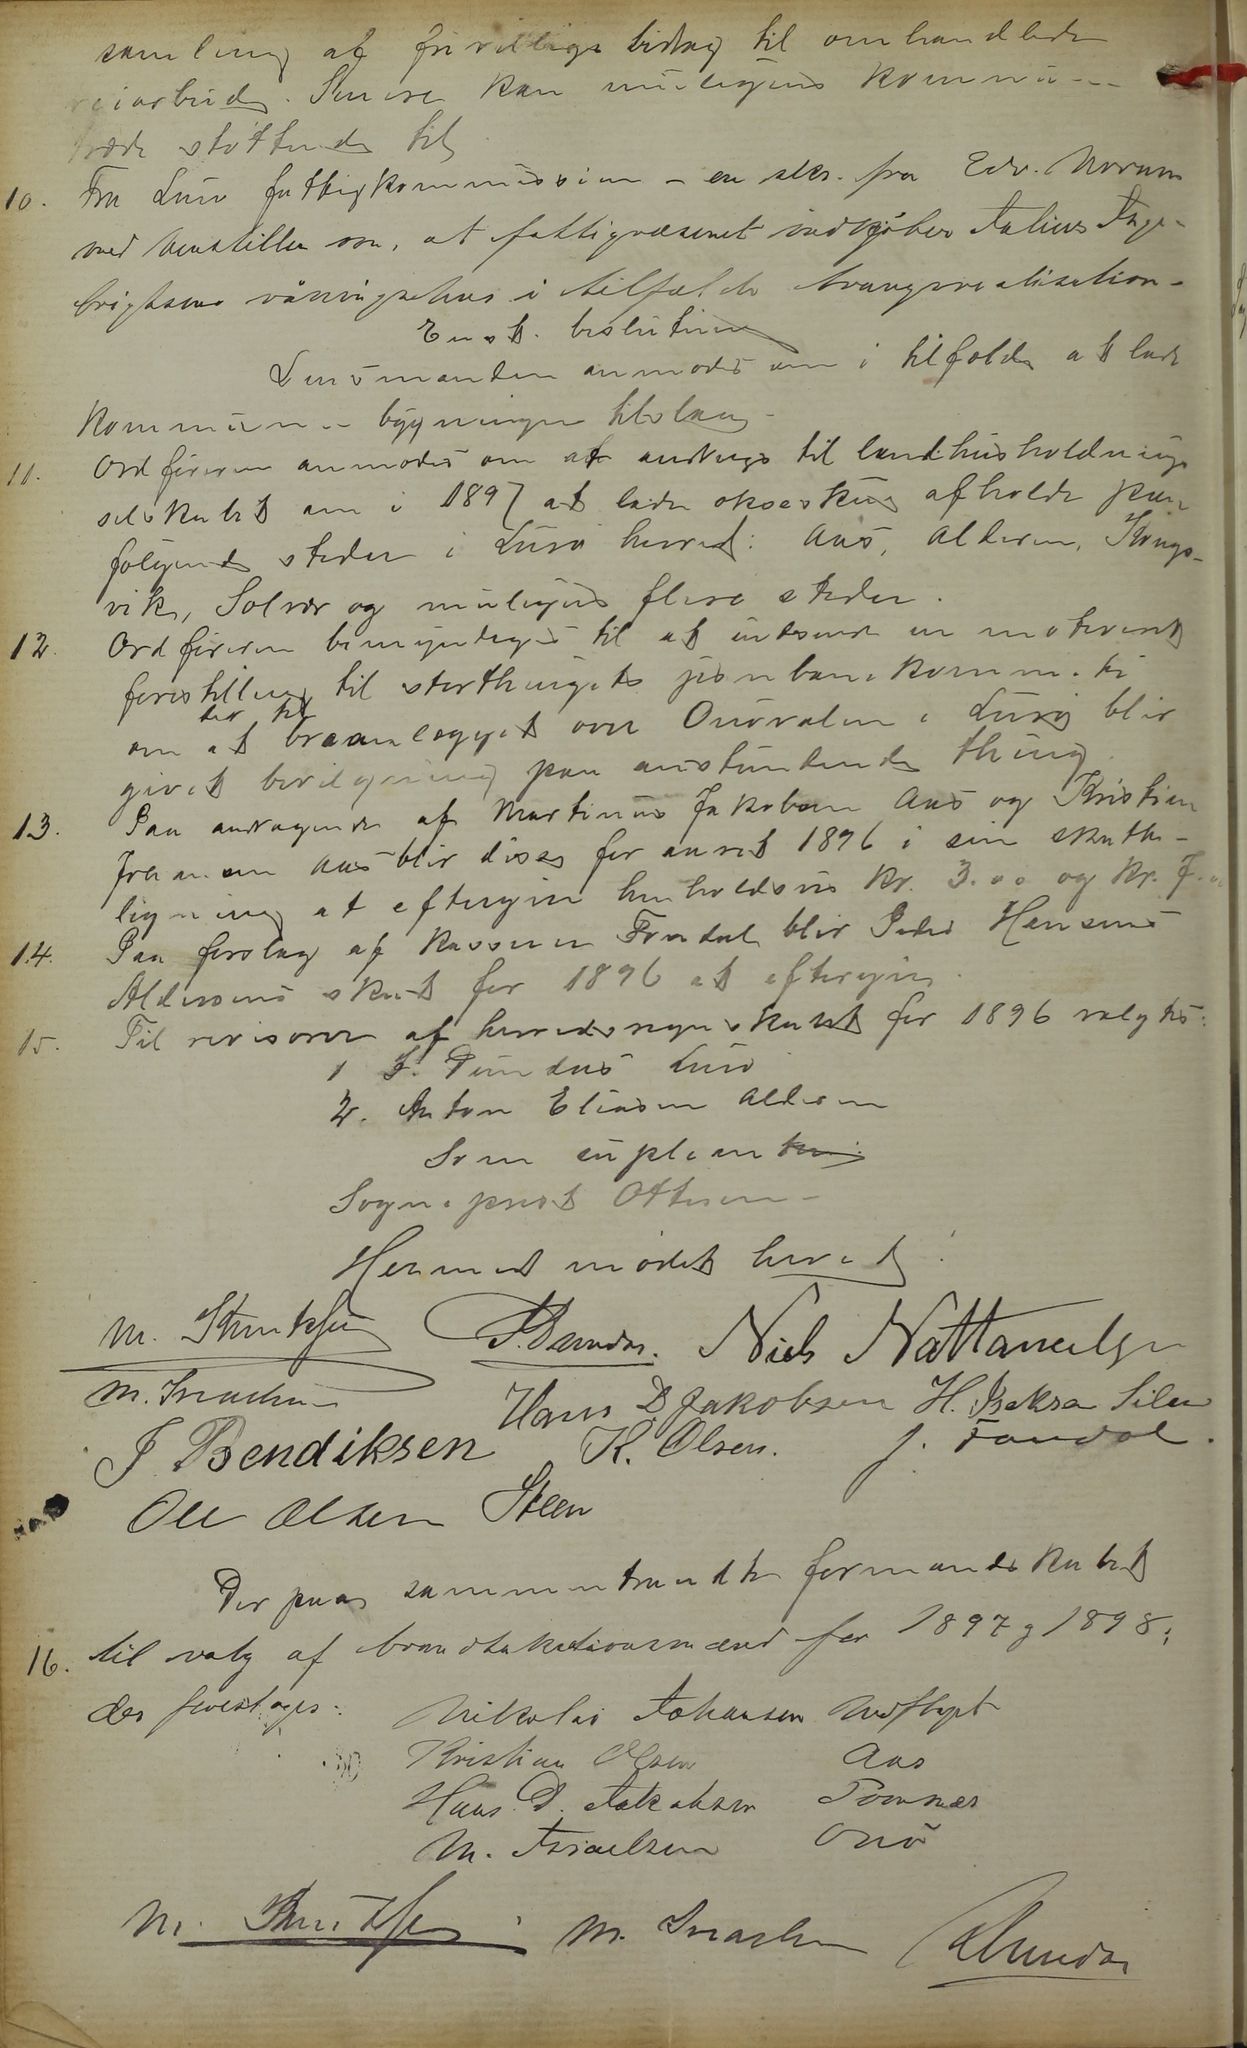 samling af frivillige bidrag til omhandlede
veiarbeide. Senere kan muligens kommunen
træde støttende til
10. Fra Lurø fattigkommission – en skr. fra Edv. Norum
med henstillen om, at fattigvæsenet indkjøber Julius Inge-
brigtsens våningshus i tilfælde tvangsrealisation –
Enst. beslutning
Lensmanden anmodes om i tilfælde at lade
kommunen bygningen tilslaaes –
11. Ordføreren anmodes om at andrage til landhusholdnings
selskabet om i 1897 at lade okseskue afholde paa
følgende steder i Lurø herred: Aas, Alderen, Kongs-
vik, Solvær og muligens flere steder.
12. Ordføreren bemyndiges til at indsende en motiveret
forestilling til storthingets jernbanekommite
om at der til braanlægget over Onøvalen i Lurø blir
givet bevilgning paa anstundende thing.
13. Paa andragende af Martinus Jakobsen Aas og Kristian
Aas blir disse for aaret 1896 i sin skatte-
ligning at eftergive henholdsvis kr. 3.00 og kr.
14. Paa forslag af kasserer Fondal blir Peder Hansens
Alderens skat for 1896 at eftergive.
15. Til revisorer af herredsregnskabet for 1896 valgtes:
1 J. Dundas Lurø
2. Anton Eliasen Alderen
Som supleant
Sogneprest Ottesen –
Hermed mødet hævet!
M. J. Dundas. Niels Nattanaelsen
M. Israelsen Hans D Jakobsen H. Isaksen Silen
J Bendiksen K. Olsen. J. Fondal.
Ole Olsen Steen
Der paa sammentraadte formandskabet
16. til valg af brandtakstionsmænd for 1897 og 1898;
der foreslages:
Nikolai Johansen
Kristian Olsen Aas
Hans D. Jakobsen Tonnes
M. Israelsen Onø
M. M. Israelsen J Dundas